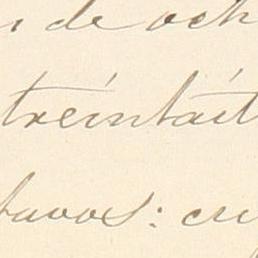 de och
treintait
tavos: cu